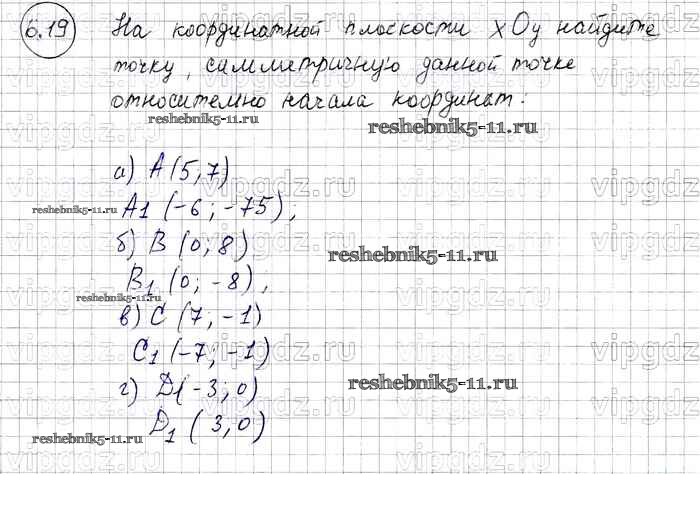 6.19 На координатной плоскости xOy найдите
точку, симметричную данной точке
относительно начала координат:
reshebnik5-11.ru
reshebnik5-11.ru
а) A (5,7)
reshebnik5-11.ru
A1 (-6; -75);
б) B (0; 8)
reshebnik5-11.ru
B1 (0; -8),
reshebnik5-11.ru
в) C (7; -1)
C1 (-7; -1)
г) D(-3; 0)
reshebnik5-11.ru
D1 (3,0)
reshebnik5-11.ru
vipgdz.ru